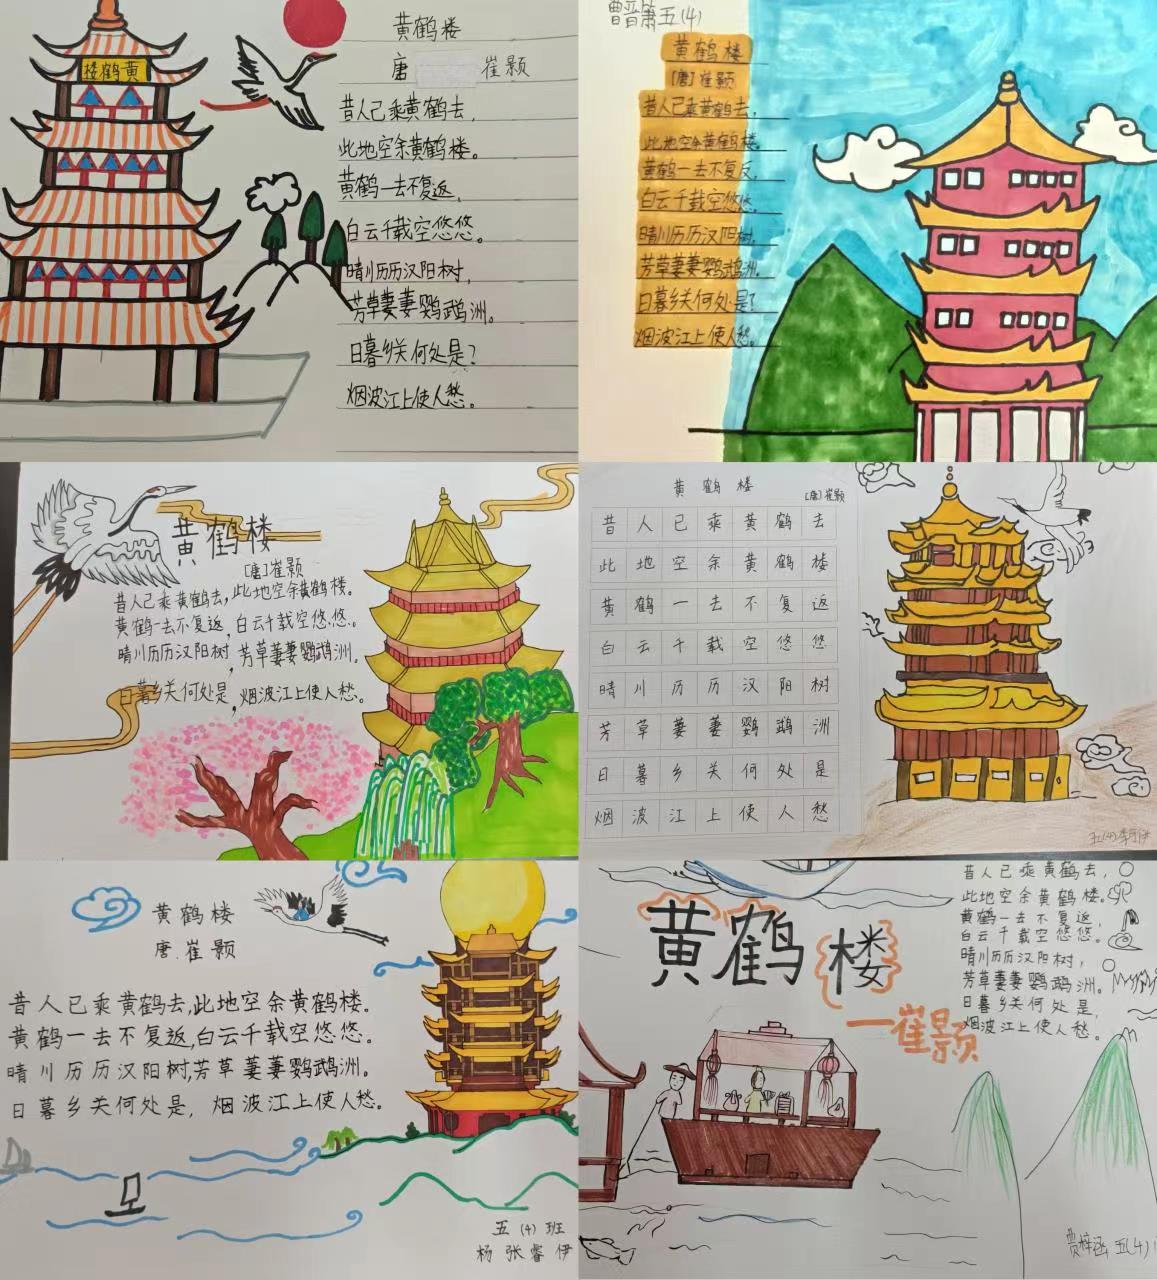 黄鹤楼
黄鹤楼
唐 崔颢
昔人已乘黄鹤去，
此地空余黄鹤楼。
黄鹤一去不复返，
白云千载空悠悠。
晴川历历汉阳树，
芳草萋萋鹦鹉洲。
日暮乡关何处是？
烟波江上使人愁。
五(4)
黄鹤楼
[唐]崔颢
昔人已乘黄鹤去，
此地空余黄鹤楼。
黄鹤一去不复反，
白云千载空悠悠
晴川历历汉阳树，
芳草萋萋鹦鹉洲。
日暮乡关何处是？
烟波江上使人愁。
黄鹤楼
[唐]崔颢
昔人已乘黄鹤去，此地空余黄鹤楼。
黄鹤一去不复返，白云千载空悠悠。
晴川历历汉阳树，芳草萋萋鹦鹉洲。
日暮乡关何处是，烟波江上使人愁。
黄鹤楼
[唐]崔颢
昔人已乘黄鹤去
此地空余黄鹤楼
黄鹤一去不复返
白云千载空悠悠
晴川历历汉阳树
芳草萋萋鹦鹉洲
日暮乡关何处是
烟波江上使人愁
五(4)
黄鹤楼
唐.崔颢
昔人已乘黄鹤去,此地空余黄鹤楼。
黄鹤一去不复返,白云千载空悠悠。
晴川历历汉阳树,芳草萋萋鹦鹉洲。
日暮乡关何处是，烟波江上使人愁。
五(4)班
杨张睿伊
黄鹤楼
—崔颢
昔人已乘黄鹤去，
此地空余黄鹤楼。
黄鹤一去不复返，
白云千载空悠悠。
晴川历历汉阳树，
芳草萋萋鹦鹉洲。
日暮乡关何处是，
烟波江上使人愁。
贾梓涵 五(4)